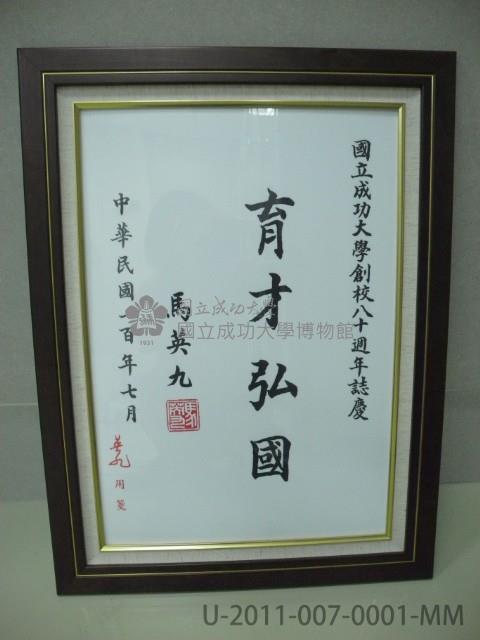 國立成功大學創校八十週年誌慶
育才弘國
馬英九
中華民國一百年七月
英九用箋
國立成功大學
國立成功大學博物館
1931
U-2011-007-0001-MM